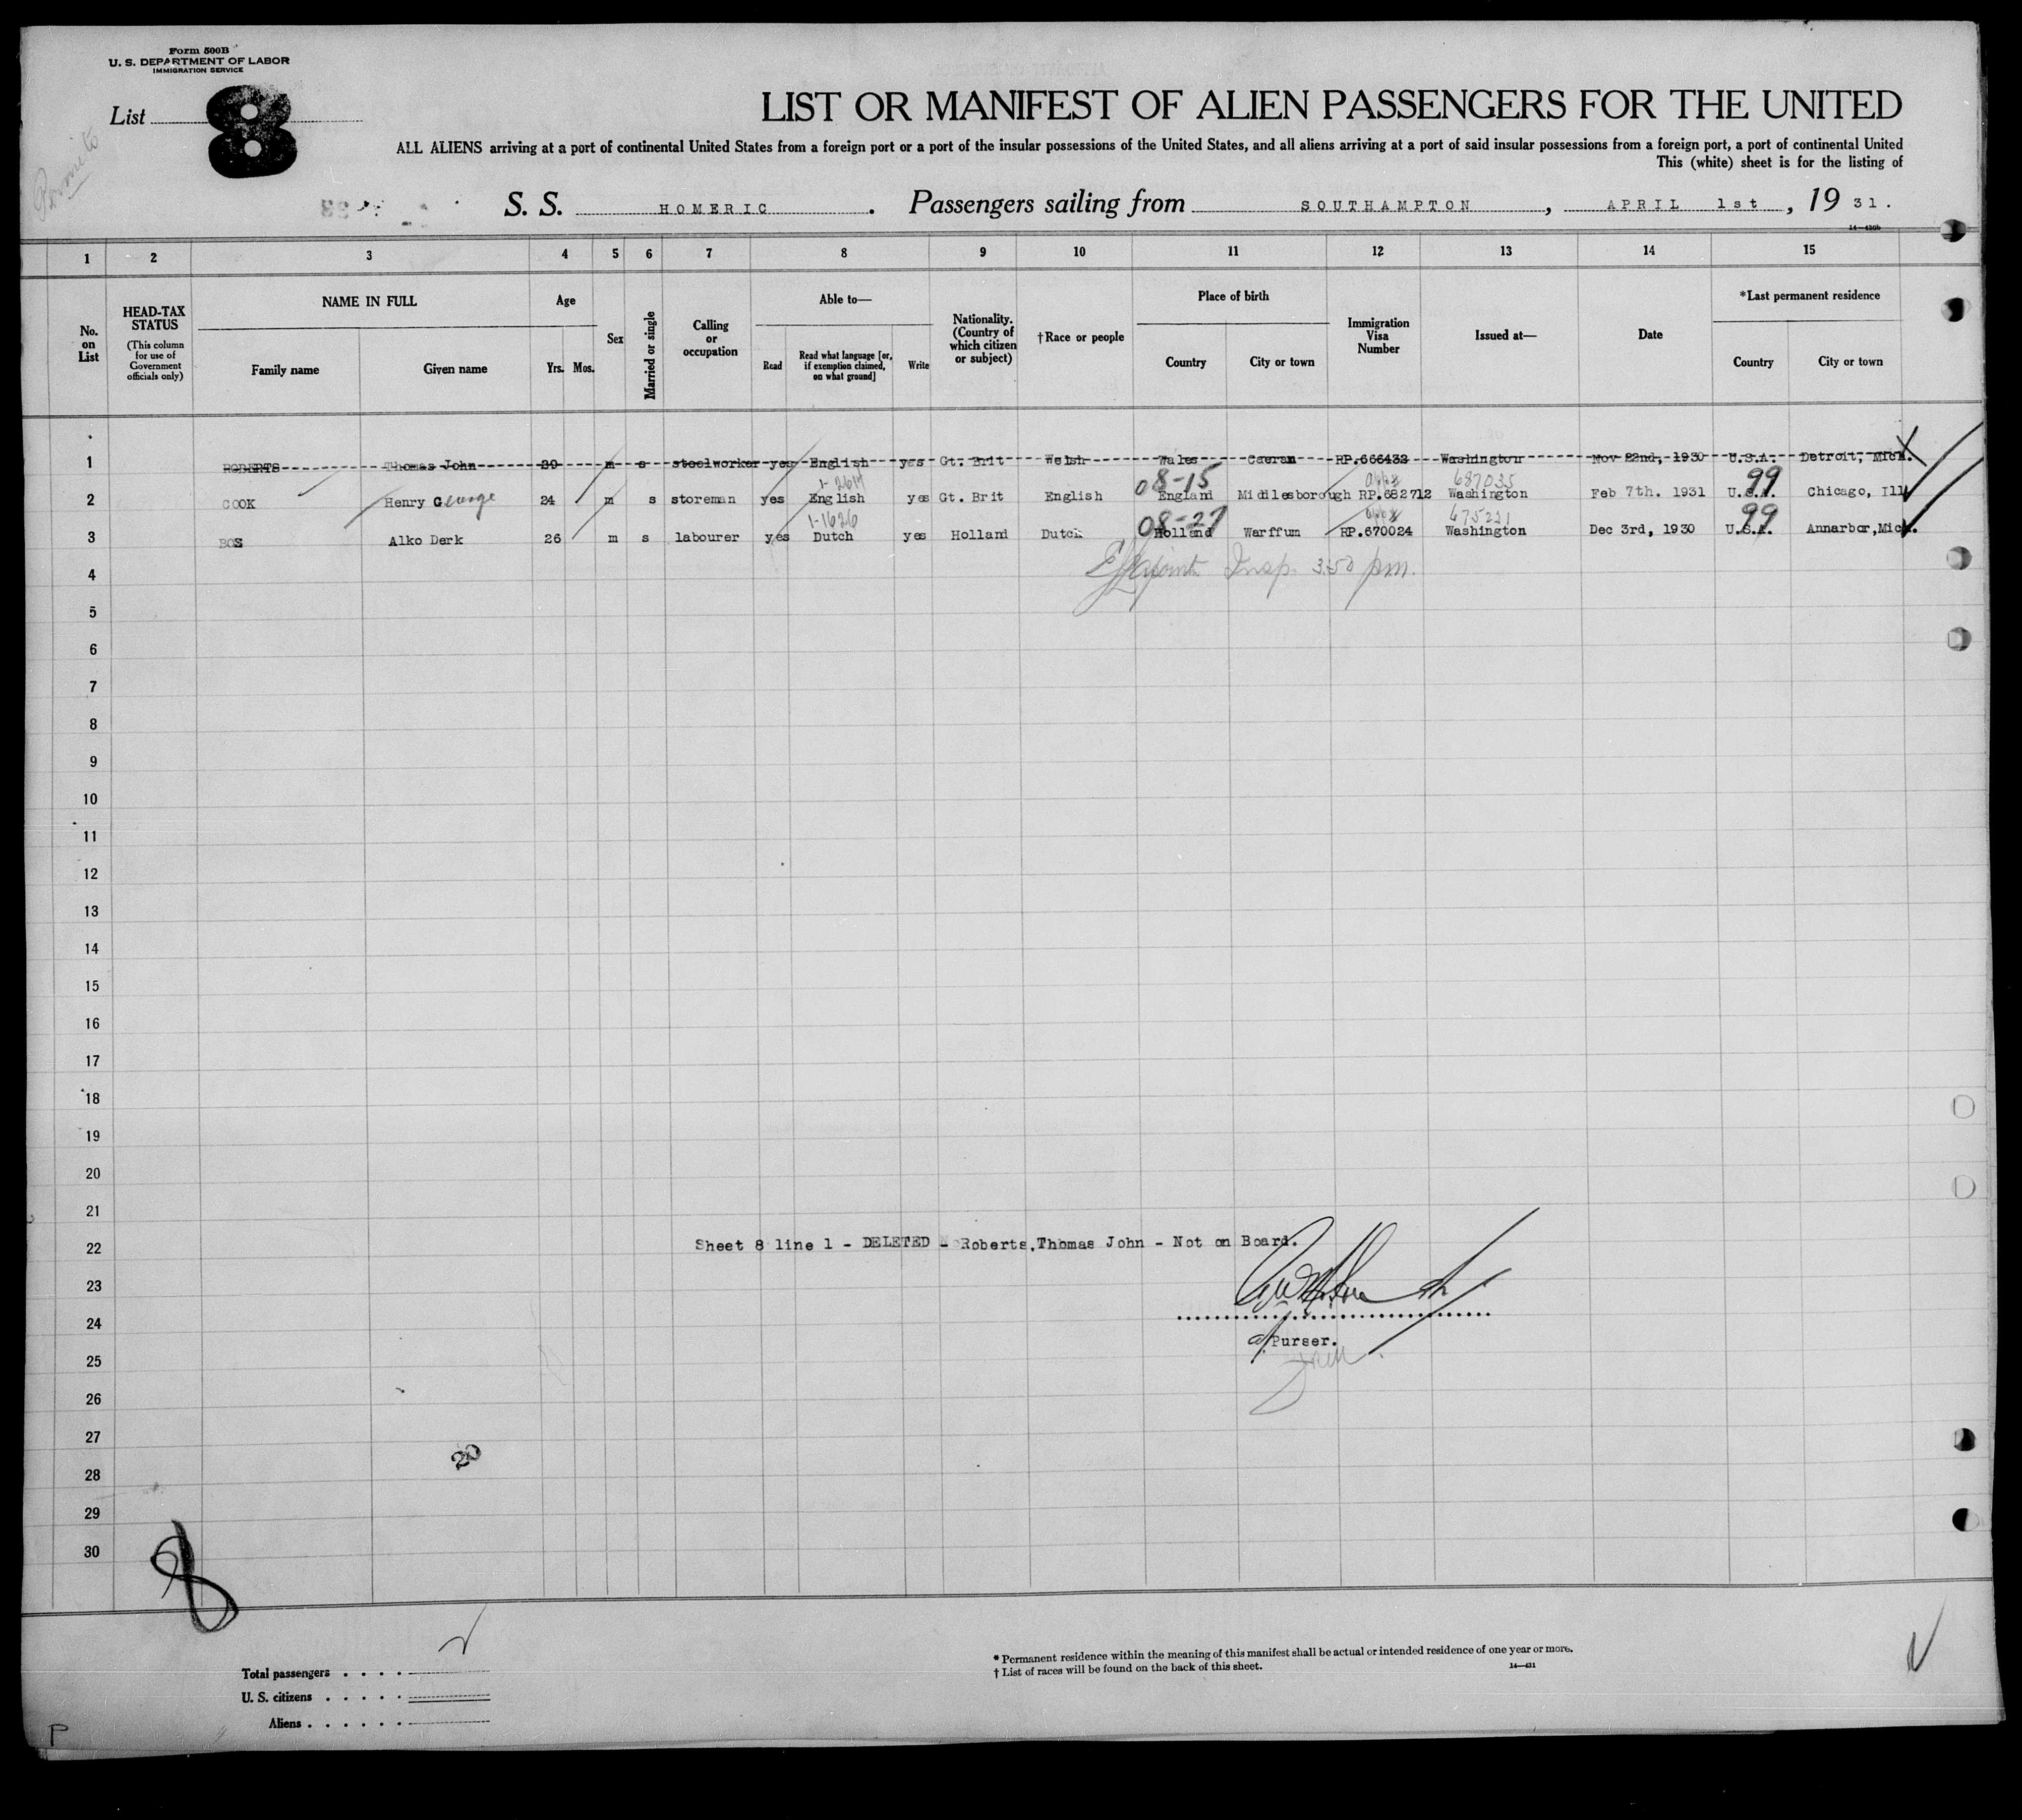 Form 500B
U. S. DEPARTMENT OF LABOR
IMMIGRATION SERVICE
List 8
LIST OR MANIFEST OF ALIEN PASSENGERS FOR THE UNITED
ALL ALIENS arriving at a port of continental United States from a foreign port or a port of the insular possessions of the United States, and all aliens arriving at a port of said insular possessions from a foreign port, a port of continental United
This (white) sheet is for the listing of
S. S. HOMERIC. Passengers sailing from SOUTHAMPTON, APRIL 1st, 19 31.
14—430b
1 2 3 4 5 6 7 8 9 10 11 12 13 14 15
No. on List
HEAD-TAX STATUS
(This column for use of Government officials only)
NAME IN FULL
Family name Given name
Age
Yrs. Mos.
Sex
Married or single
Calling or occupation
Able to—
Read
Read what language [or, if exemption claimed, on what ground]
Write
Nationality. (Country of which citizen or subject)
†Race or people
Place of birth
Country City or town
Immigration Visa Number
Issued at—
Date
*Last permanent residence
Country City or town
1 ROBERTS Thomas John m s steelworker yes English yes Gt. Brit Welsh Wales Caeran RP.666432 Washington Nov 22nd, 1930 U.S.A. Detroit, Mich.
08-15 687035 99
2 COOK Henry George 24 m s storeman yes English yes Gt. Brit English England Middlesborough RP.682712 Washington Feb 7th. 1931 U.S.A. Chicago, Ill
1-1626 08-27 675221 99
3 BOS Alko Derk 26 m s labourer yes Dutch yes Holland Dutch Holland Warffum RP.670024 Washington Dec 3rd, 1930 U.S.A. Annarbor, Mich.
Insp. 3:50 pm.
4
5
6
7
8
9
10
11
12
13
14
15
16
17
18
19
20
21
22 Sheet 8 line 1 - DELETED - Roberts, Thomas John - Not on Board.
23
24
Purser.
25
26
27
20
28
29
30
8
Total passengers
U. S. citizens
Aliens
* Permanent residence within the meaning of this manifest shall be actual or intended residence of one year or more.
† List of races will be found on the back of this sheet.
14—431
P